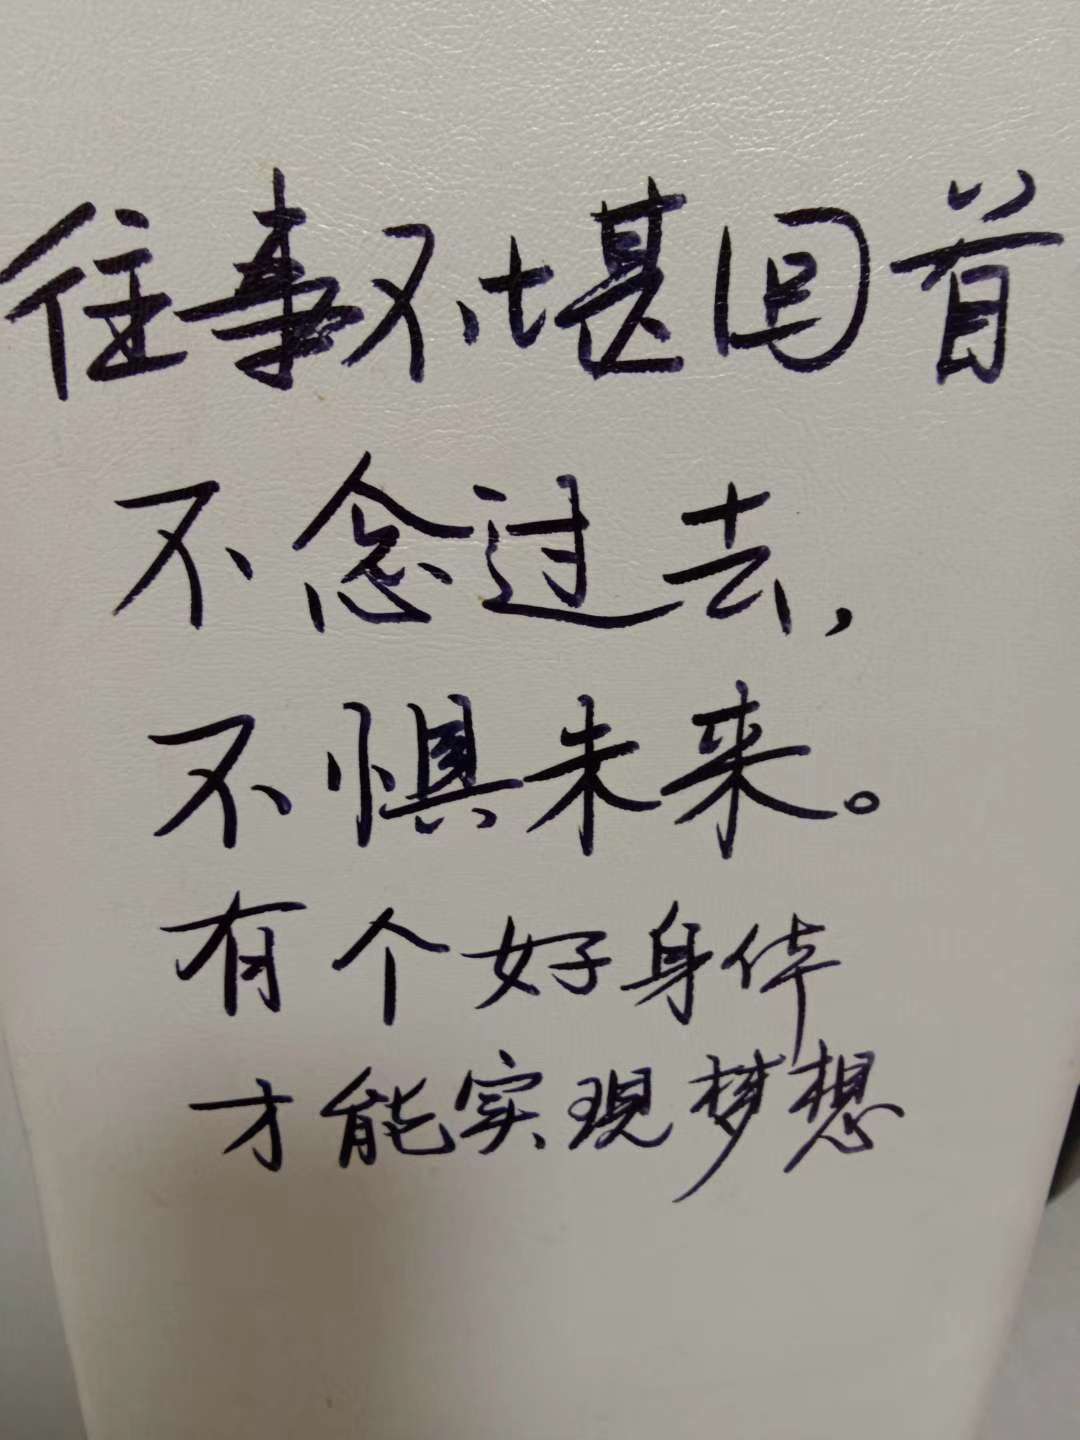 往事不堪回首
不念过去,
不惧未来。
有个好身体
才能实现梦想